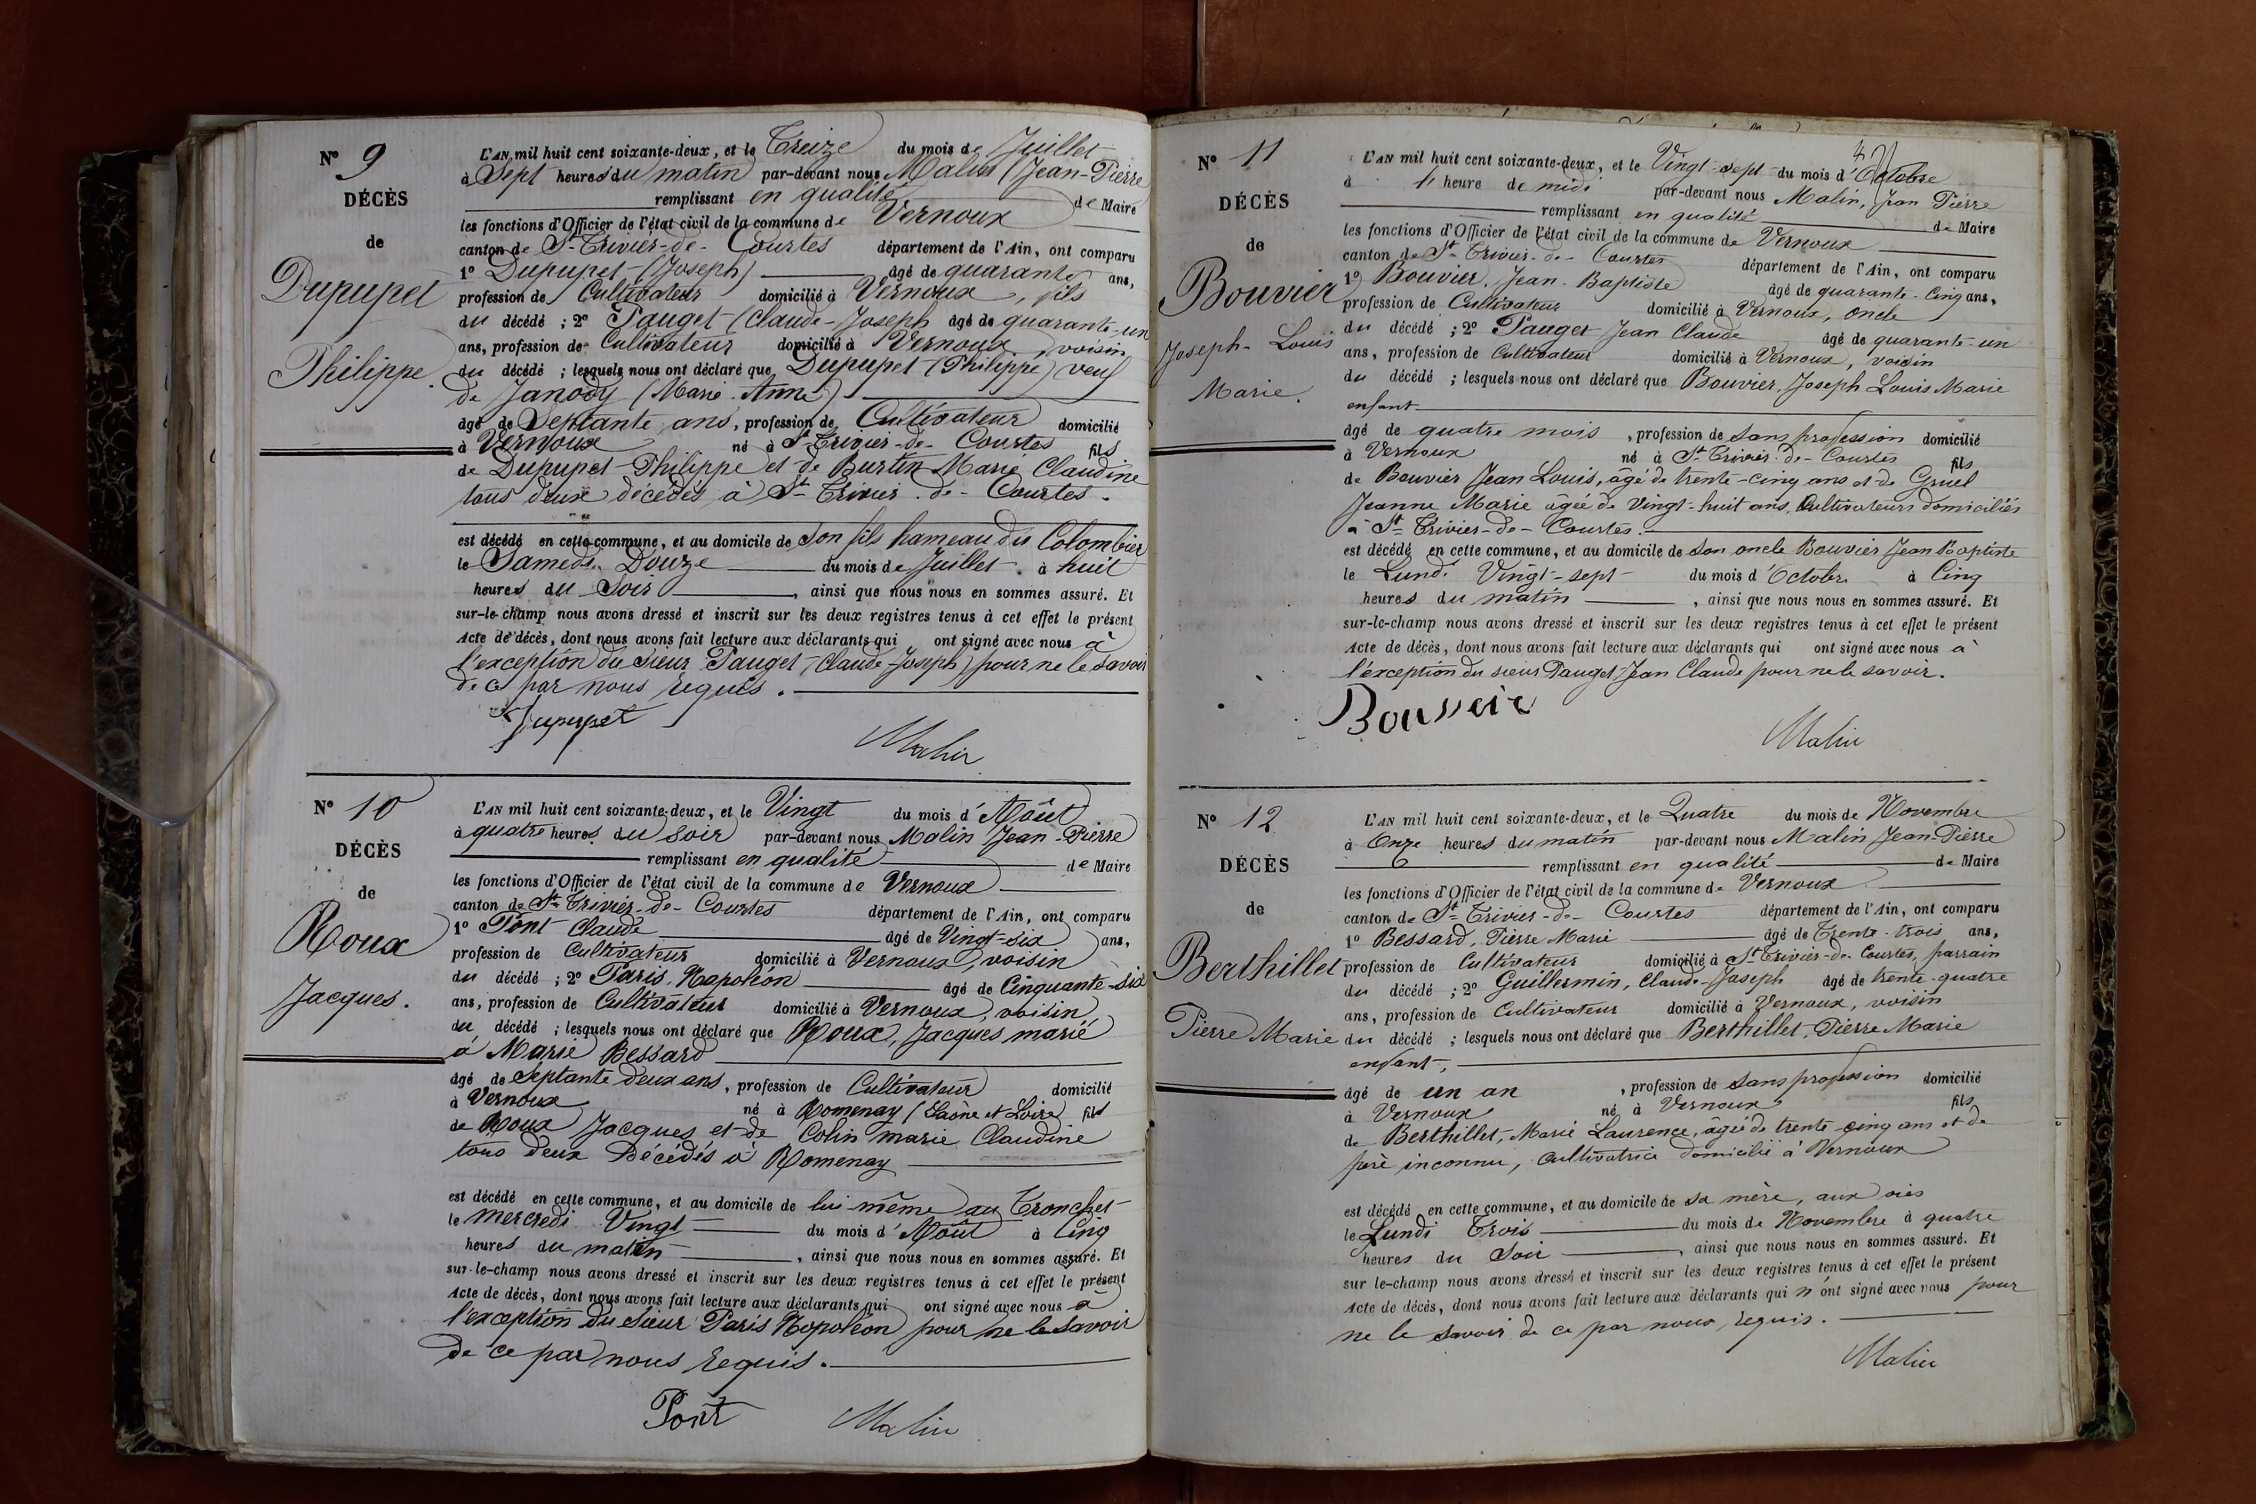 N° 9
DÉCÈS
de
Dupupet
Philippe.
L'AN mil huit cent soixante-deux, et le Treize du mois de Juillet
à Sept heures du matin par-devant nous Malin (Jean-Pierre
remplissant en qualité de Maire
les fonctions d'Officier de l'état civil de la commune de Vernoux
canton de St Trivier-de-Courtes département de l'Ain, ont comparu
1° Dupupet (Joseph) âgé de quarante ans,
profession de Cultivateur domicilié à Vernoux, fils
du décédé ; 2° Pauget (Claude-Joseph âgé de quarante-un
ans, profession de Cultivateur domicilié à Vernoux, voisin
du décédé ; lesquels nous ont déclaré que Dupupet (Philippe) veuf
de Janody (Marie-Anne)
âgé de Septante ans, profession de Cultivateur domicilié
à Vernoux né à St Trivier-de-Courtes fils
de Dupupet Philippe et de Burtin Marie Claudine
tous deux décédés à St Trivier-de-Courtes.
est décédé en cette commune, et au domicile de son fils hameau du Colombier
le Samedi Douze du mois de Juillet à huit
heures du Soir, ainsi que nous nous en sommes assuré. Et
sur-le-champ nous avons dressé et inscrit sur les deux registres tenus à cet effet le présent
Acte de décès, dont nous avons fait lecture aux déclarants qui ont signé avec nous à
l'exception du sieur Pauget (Claude-Joseph) pour ne le savoir
de ce par nous requis.
Dupupet
Malin
N° 10
DÉCÈS
de
Roux
Jacques.
L'AN mil huit cent soixante-deux, et le Vingt du mois d'Août
à quatre heures du soir par-devant nous Malin Jean-Pierre
remplissant en qualité de Maire
les fonctions d'Officier de l'état civil de la commune de Vernoux
canton de St Trivier-de-Courtes département de l'Ain, ont comparu
1° Pont Claude âgé de Vingt-six ans,
profession de Cultivateur domicilié à Vernoux, voisin
du décédé ; 2° Paris Napoléon âgé de Cinquante-six
ans, profession de Cultivateur domicilié à Vernoux, voisin
du décédé ; lesquels nous ont déclaré que Roux, Jacques marié
à Marie Bessard
âgé de Septante deux ans, profession de Cultivateur domicilié
à Vernoux né à Romenay (Saône et Loire) fils
de Roux Jacques et de Colin marie Claudine
tous deux Décédés à Romenay
est décédé en cette commune, et au domicile de lui-même au Tronchet
le mercredi Vingt du mois d'Août à Cinq
heures du matin, ainsi que nous nous en sommes assuré. Et
sur-le-champ nous avons dressé et inscrit sur les deux registres tenus à cet effet le présent
Acte de décès, dont nous avons fait lecture aux déclarants qui ont signé avec nous à
l'exception du sieur Paris Napoléon pour ne le savoir
de ce par nous requis.
Pont
Malin
N° 11
DÉCÈS
de
Bouvier
Joseph-Louis
Marie.
L'AN mil huit cent soixante-deux, et le Vingt-sept du mois d'Octobre
à 1 heure de midi par-devant nous Malin, Jean Pierre
remplissant en qualité de Maire
les fonctions d'Officier de l'état civil de la commune de Vernoux
canton de St Trivier-de-Courtes département de l'Ain, ont comparu
1° Bouvier, Jean-Baptiste âgé de quarante-cinq ans,
profession de Cultivateur domicilié à Vernoux, oncle
du décédé ; 2° Pauget Jean Claude âgé de quarante-un
ans, profession de Cultivateur domicilié à Vernoux, voisin
du décédé ; lesquels nous ont déclaré que Bouvier, Joseph Louis Marie
enfant
âgé de quatre mois, profession de sans profession domicilié
à Vernoux né à St Trivier-de-Courtes fils
de Bouvier Jean Louis, âgé de trente-cinq ans et de Gruel
Jeanne Marie âgée de Vingt-huit ans, Cultivateurs domiciliés
à St Trivier-de-Courtes.
est décédé en cette commune, et au domicile de son oncle Bouvier Jean Baptiste
le Lundi Vingt-sept du mois d'Octobre à Cinq
heures du matin, ainsi que nous nous en sommes assuré. Et
sur-le-champ nous avons dressé et inscrit sur les deux registres tenus à cet effet le présent
Acte de décès, dont nous avons fait lecture aux déclarants qui ont signé avec nous à
l'exception du sieur Pauget Jean Claude pour ne le savoir.
Bouveir
Malin
N° 12
DÉCÈS
de
Berthillet
Pierre Marie
L'AN mil huit cent soixante-deux, et le Quatre du mois de Novembre
à Onze heures du matin par-devant nous Malin Jean-Pierre
remplissant en qualité de Maire
les fonctions d'Officier de l'état civil de la commune de Vernoux
canton de St Trivier-de-Courtes département de l'Ain, ont comparu
1° Bessard, Pierre Marie âgé de Trente-trois ans,
profession de Cultivateur domicilié à St Trivier-de-Courtes, parrain
du décédé ; 2° Guillermin, Claude-Joseph âgé de trente-quatre
ans, profession de Cultivateur domicilié à Vernoux, voisin
du décédé ; lesquels nous ont déclaré que Berthillet, Pierre Marie
enfant,
âgé de un an, profession de sans profession domicilié
à Vernoux né à Vernoux fils
de Berthillet, Marie Laurence, âgée de trente-cinq ans et de
père inconnu, Cultivatrice domicilié à Vernoux
est décédé en cette commune, et au domicile de sa mère, aux oies
le Lundi Trois du mois de Novembre à quatre
heures du Soir, ainsi que nous nous en sommes assuré. Et
sur le-champ nous avons dressé et inscrit sur les deux registres tenus à cet effet le présent
Acte de décès, dont nous avons fait lecture aux déclarants qui n'ont signé avec nous pour
ne le savoir de ce par nous requis.
Malin